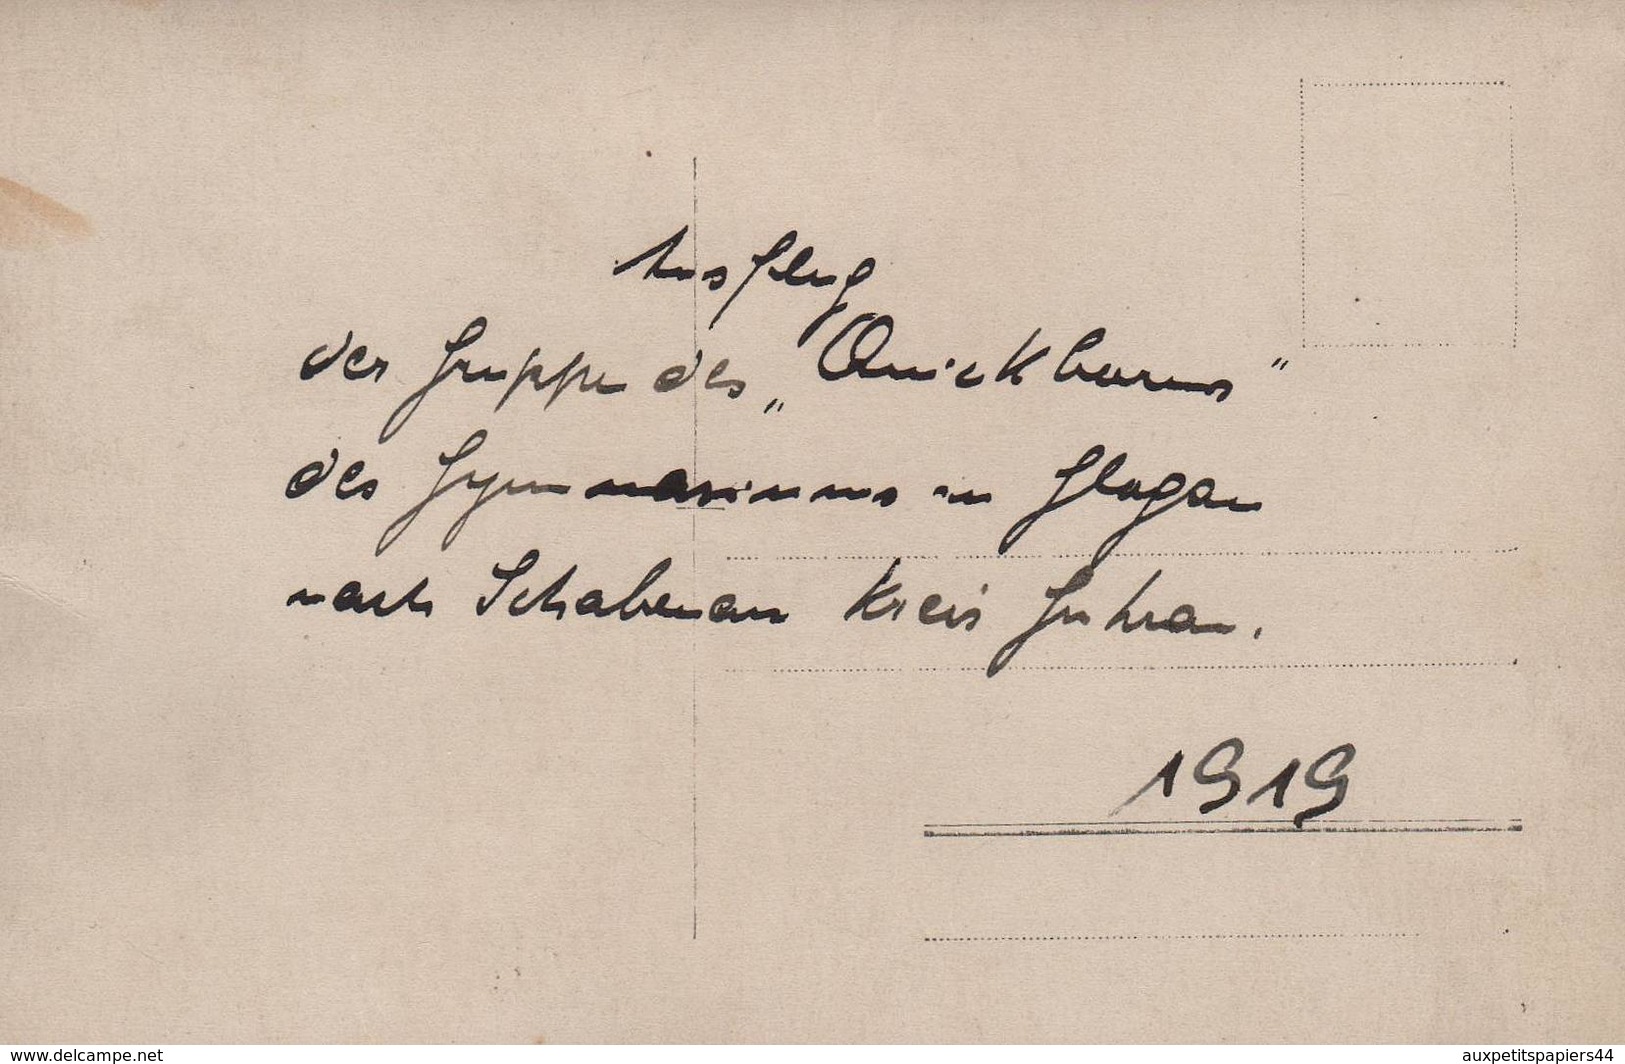 Ausflug
der Gruppe des „Quickborns"
des Gymnasiums in Glogau
nach Schabenau Kreis Guhrau.
1919
www.delcampe.net
auxpetitspapiers44